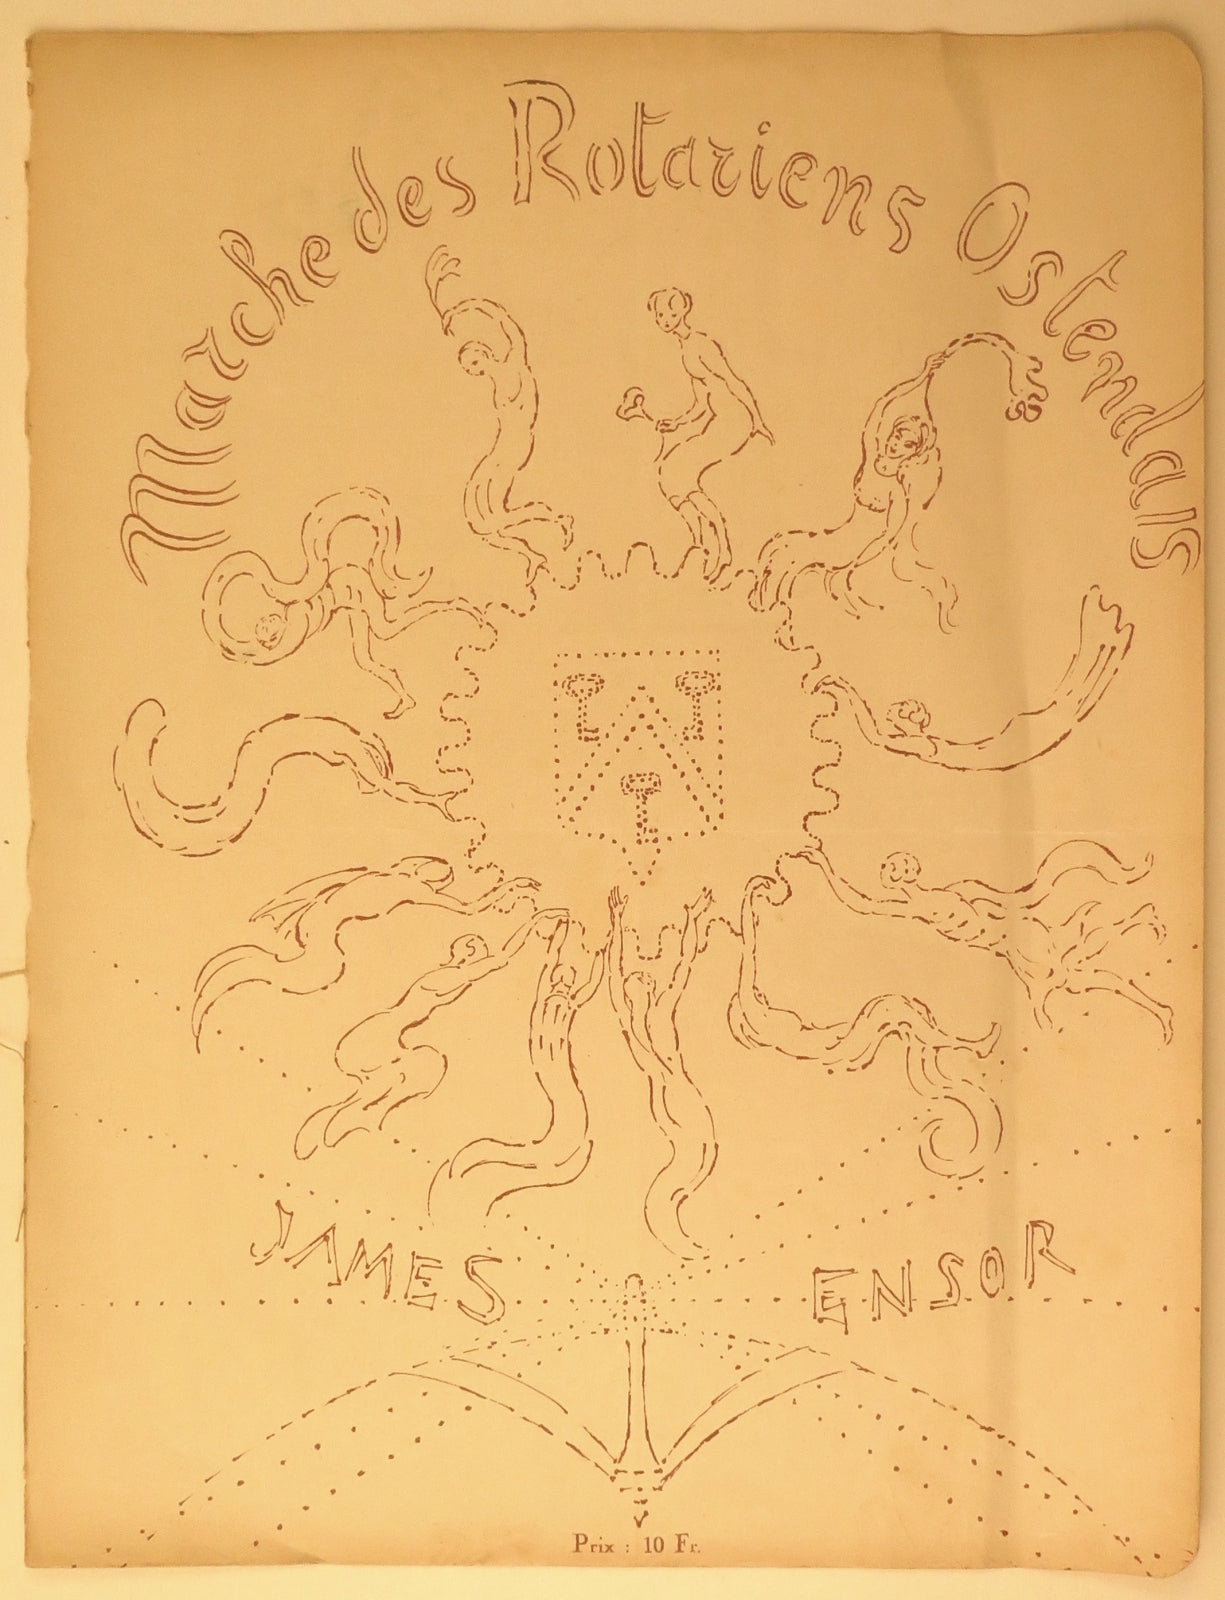 Marche des Rotariens Ostendais
JAMES ENSOR
Prix : 10 Fr.